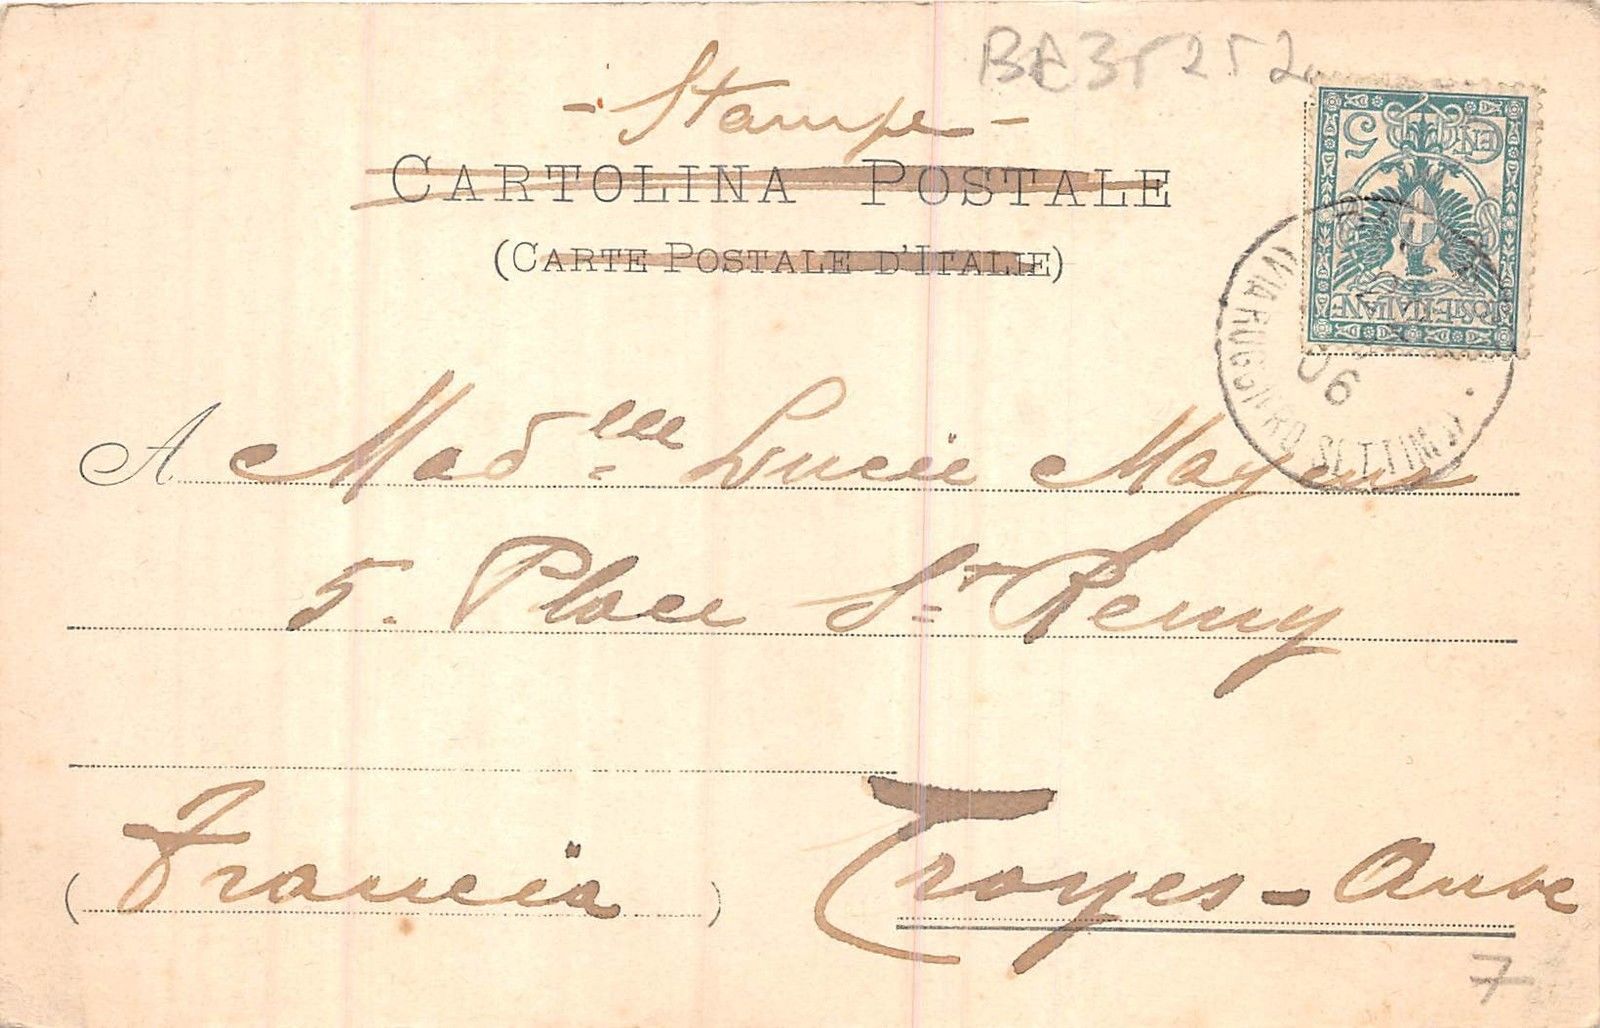 BE35252
- Stampe -
CARTOLINA POSTALE
(CARTE POSTALE D'ITALIE)
CENT. 5
POSTE ITALIANE
(VIA RUGGIERO SETTIMO)
06
A Mad.elle Lucie Mayeur
5. Place St. Remy
(Francia) Troyes - Aube
7